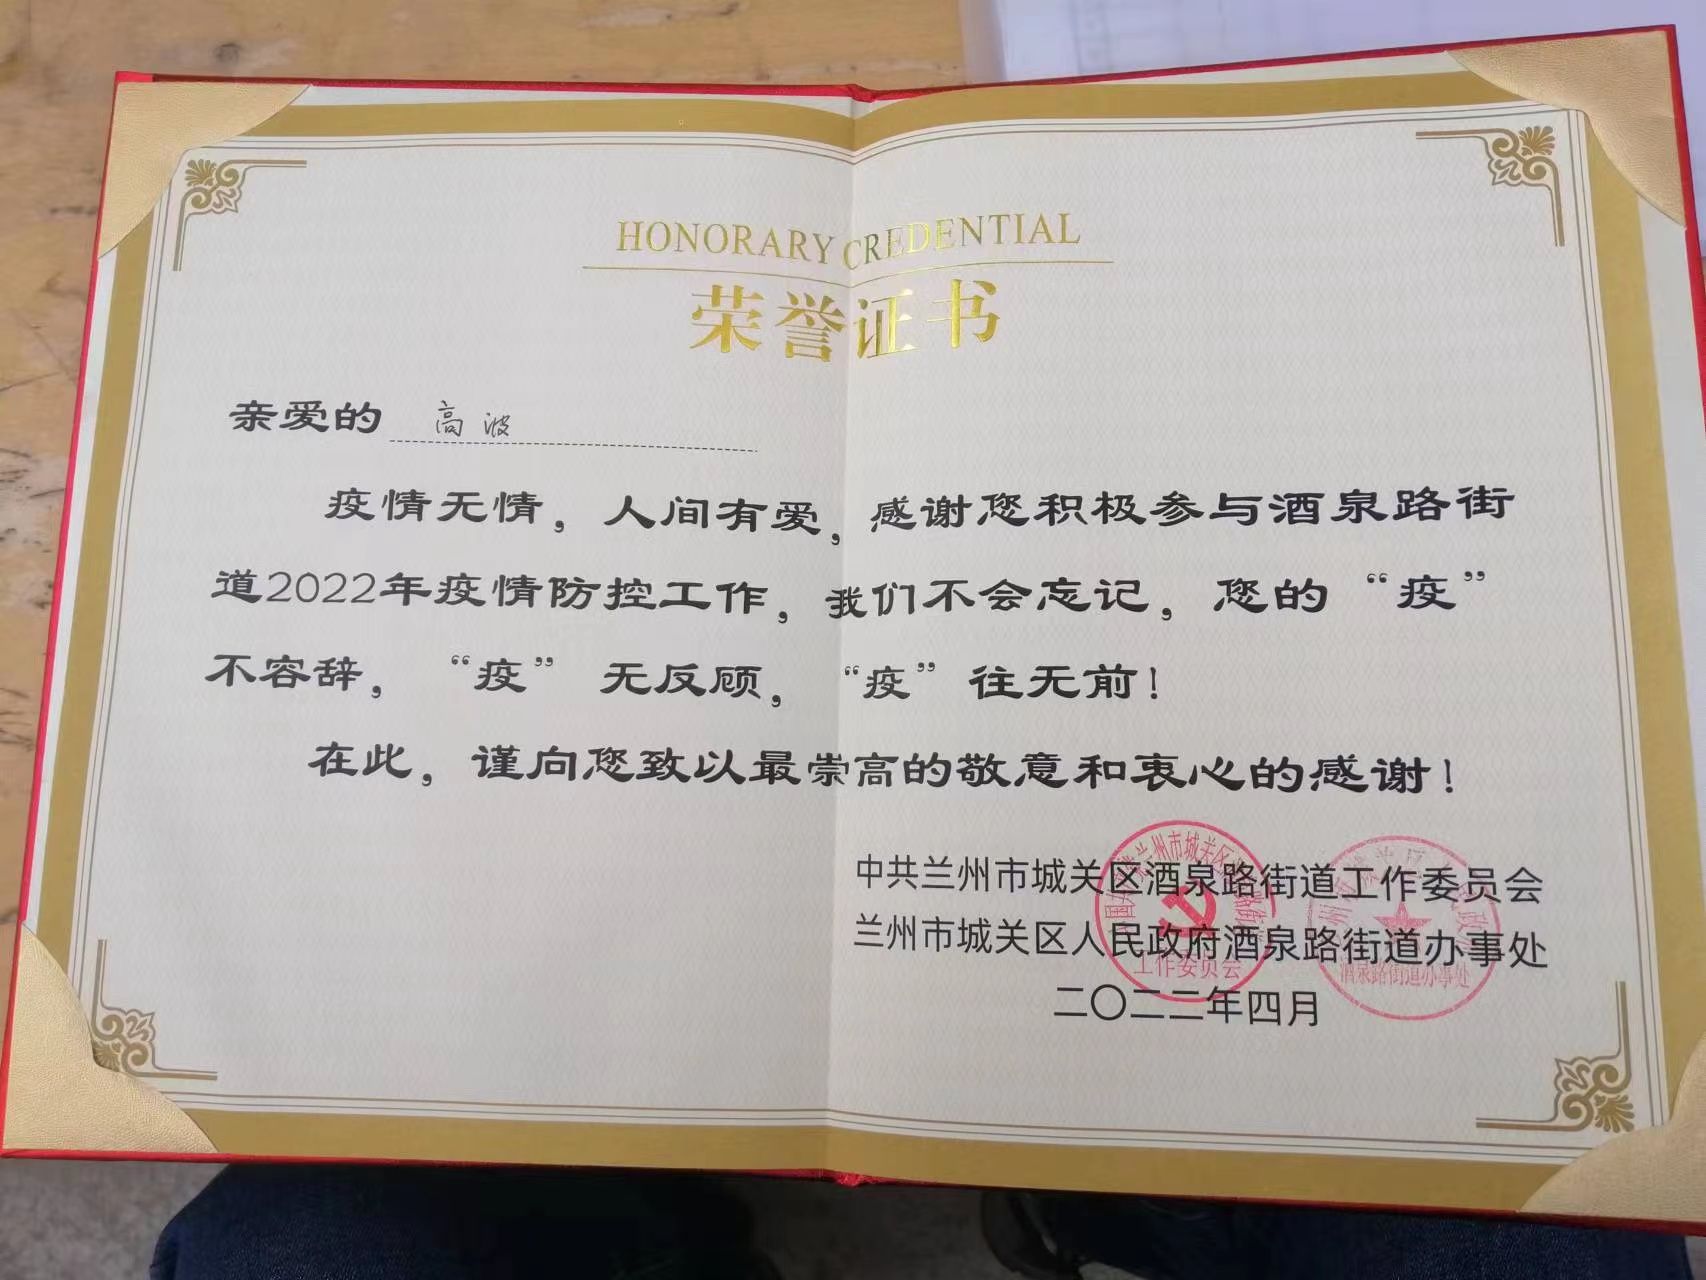 HONORARY CREDENTIAL
荣誉证书
亲爱的 高波
疫情无情，人间有爱，感谢您积极参与酒泉路街
道2022年疫情防控工作，我们不会忘记，您的“疫”
不容辞，“疫”无反顾，“疫”往无前！
在此，谨向您致以最崇高的敬意和衷心的感谢！
中共兰州市城关区酒泉路街道工作委员会
兰州市城关区人民政府酒泉路街道办事处
二〇二二年四月
工作委员会
酒泉路街道办事处